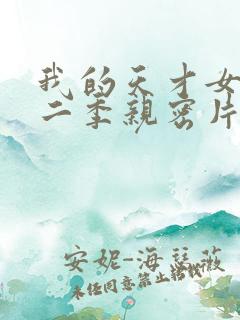 我的天才女
二季亲密片
安妮-海瑟薇
未经同意禁止转载